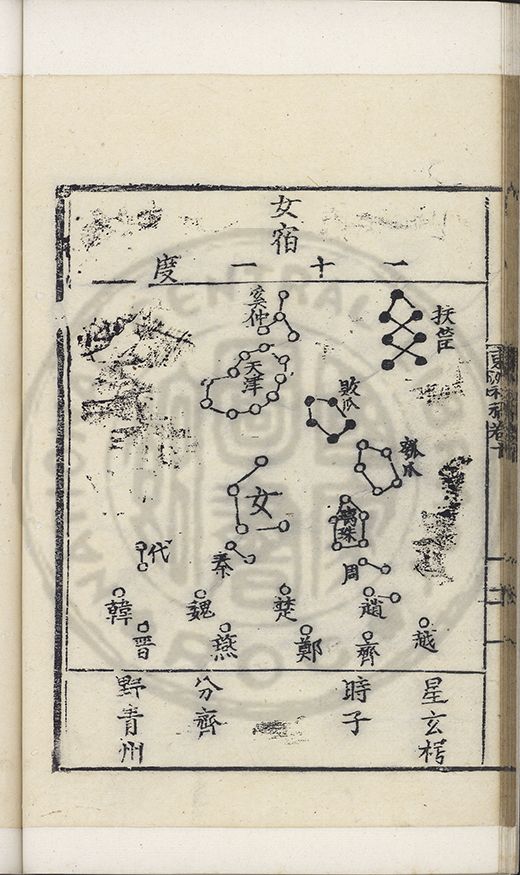 女宿
一十一度
扶筐
奚仲
天津
敗瓜
瓠瓜
女
離珠
代
秦
周
韓
魏
楚
趙
晋
燕
鄭
齊
越
星玄枵
時子
分齊
野青州
CENTRAL